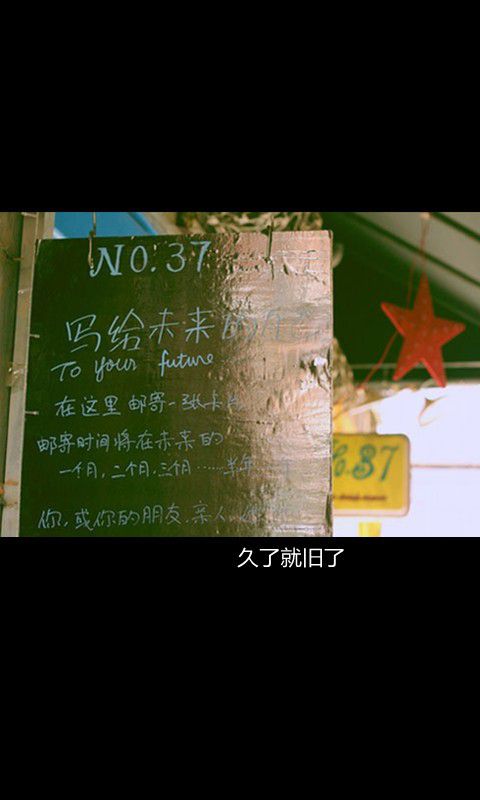 NO.37
写给未来的
To your future
在这里邮寄一张卡片
邮寄时间将在未来的
一个月,二个月,三个月……半年
你,或你的朋友,亲人
.37
久了就旧了